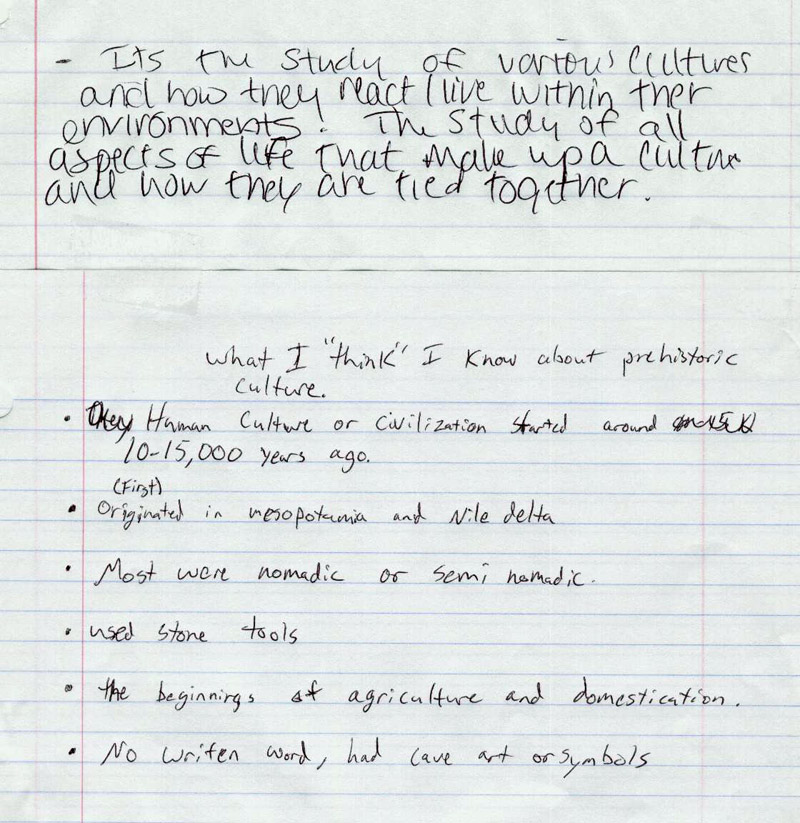 - Its the study of various cultures
and how they react/live within ther
environments! The study of all
aspects of life that make up a cultur
and how they are tied together.
what I "think" I know about prehistoric
culture.
• They Human Culture or Civilization started around
10-15,000 years ago.
(First)
• Originated in mesopotamia and Nile delta
• Most were nomadic or semi nomadic.
• used stone tools
• the beginnings of agriculture and domestication.
• No writen word, had cave art or symbols